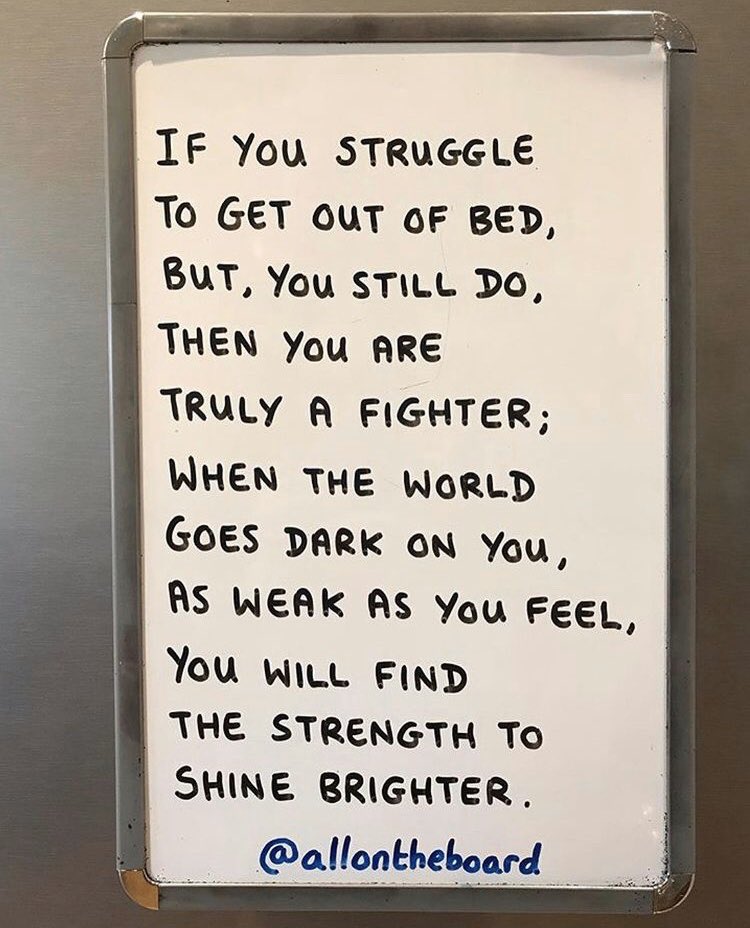 IF YOU STRUGGLE
TO GET OUT OF BED,
BUT, YOU STILL DO,
THEN YOU ARE
TRULY A FIGHTER;
WHEN THE WORLD
GOES DARK ON YOU,
AS WEAK AS YOU FEEL,
YOU WILL FIND
THE STRENGTH TO
SHINE BRIGHTER.
@allontheboard